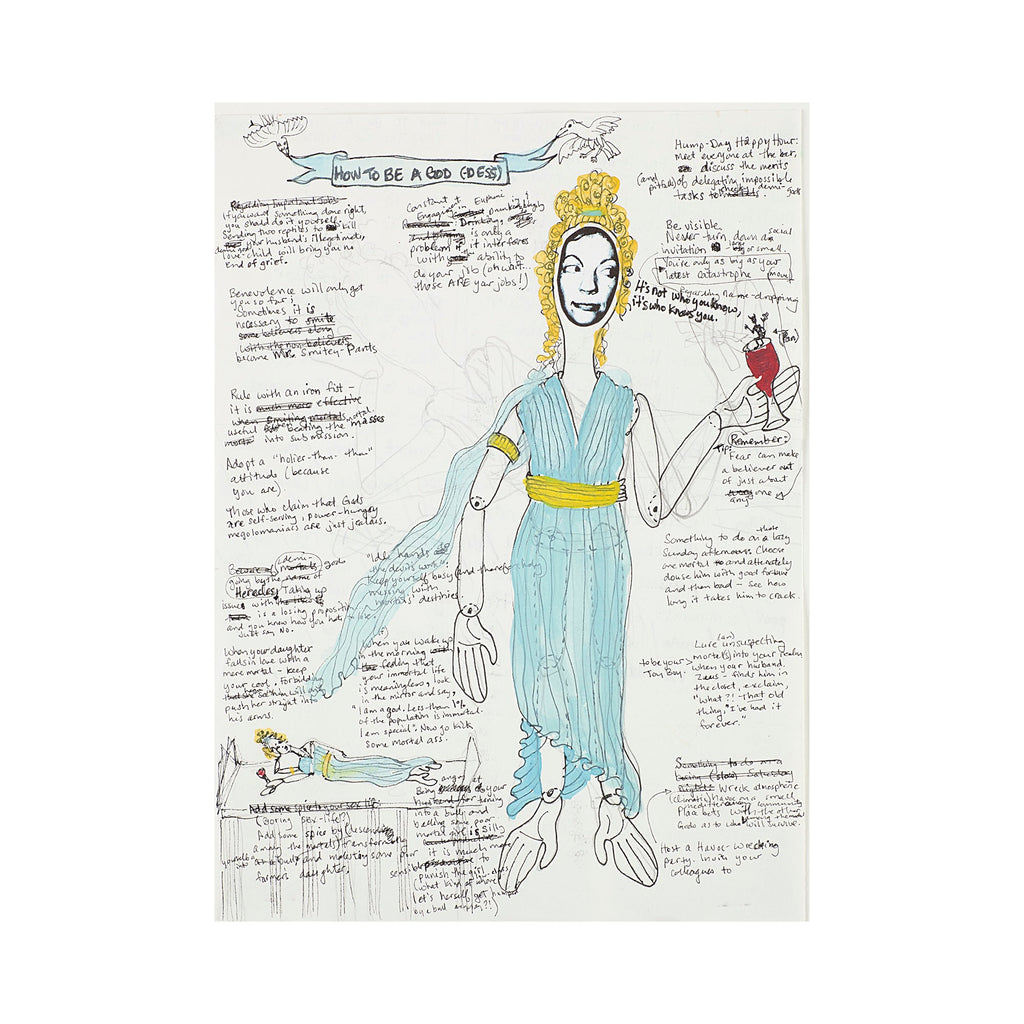 HOW TO BE A GOD (-DESS)
if you want something done right,
you should do it yourself.
Sending two reptiles to kill
your husband's illegitimate,
love-child will bring you no
end of grief.
Benevolence will only get
you so far;
Sometimes it is
necessary to smite
some believers along
with the non-believers
become Mr. Smitey-Pants
Rule with an iron fist -
it is much more effective
when smiting mortals
useful beating the masses
into submission.
Adopt a "holier-than-than"
attitude (because
you are)
Those who claim that Gods
are self-serving, power-hungry
megolomaniacs are just jealous.
(demi-) gods
going by the name of
Heracles; Taking up
issues with
is a losing proposition
and you know how you hate to lose.
Just say No.
When your daughter
falls in love with a
mere mortal - keep
your cool. Forbidding
him will only
push her straight into
his arms.
Constant
Engaging in
Drinking
is only a
problem if it interferes
with your ability to
do your job (oh wait...
those ARE your jobs!)
"Idle hands
the devil's work".
Keep yourself busy (and therefore happy)
messing with
mortals' destinies
(if)
When you wake up
in the morning with
feeling that
your immortal life
is meaningless, look
in the mirror and say,
"I am a god. Less than 1%
of the population is immortal.
I am special". Now go kick
some mortal ass.
Add some spice to your sex life:
(Boring sex-life?)
Add some spice by (descending
among the mortals) transforming
yourself into a bull and molesting some poor
farmers daughter.
Being angry at your
husband for turning
into a bull and
balling some poor
mortal girl is silly
it is much more
sensible to
punish the girl.
(what kind of whore
let's herself get humped
by a bull anyway?!)
Hump-Day Happy Hour:
Meet everyone at the bar,
discuss the merits
(and pitfalls) of delegating impossible
tasks to demi-gods
Be visible.
Never turn down a social
invitation - large or small.
You're only as big as your
latest catastrophe (movie)
Regarding name-dropping
It's not who you know,
it's who knows you.
(Pan)
Tip: Remember:
Fear can make
a believer out
of just about
anyone
Something to do on those lazy
Sunday afternoons: Choose
one mortal and alternately
douse him with good fortune
and then bad - see how
long it takes him to crack.
Lure (an) unsuspecting
mortal(s) into your realm
to be your Toy Boy.
When your husband,
Zeus - finds him in
the closet, exclaim,
"What?! - That old
thing, I've had it
forever."
Something to do on a
boring (slow) Saturday
Night: Wreck atmospheric
(climatic) havoc on a small
community
Place bets with the other
Gods as to who will survive.
Host a Havoc-wrecking
party. Invite your
colleagues to